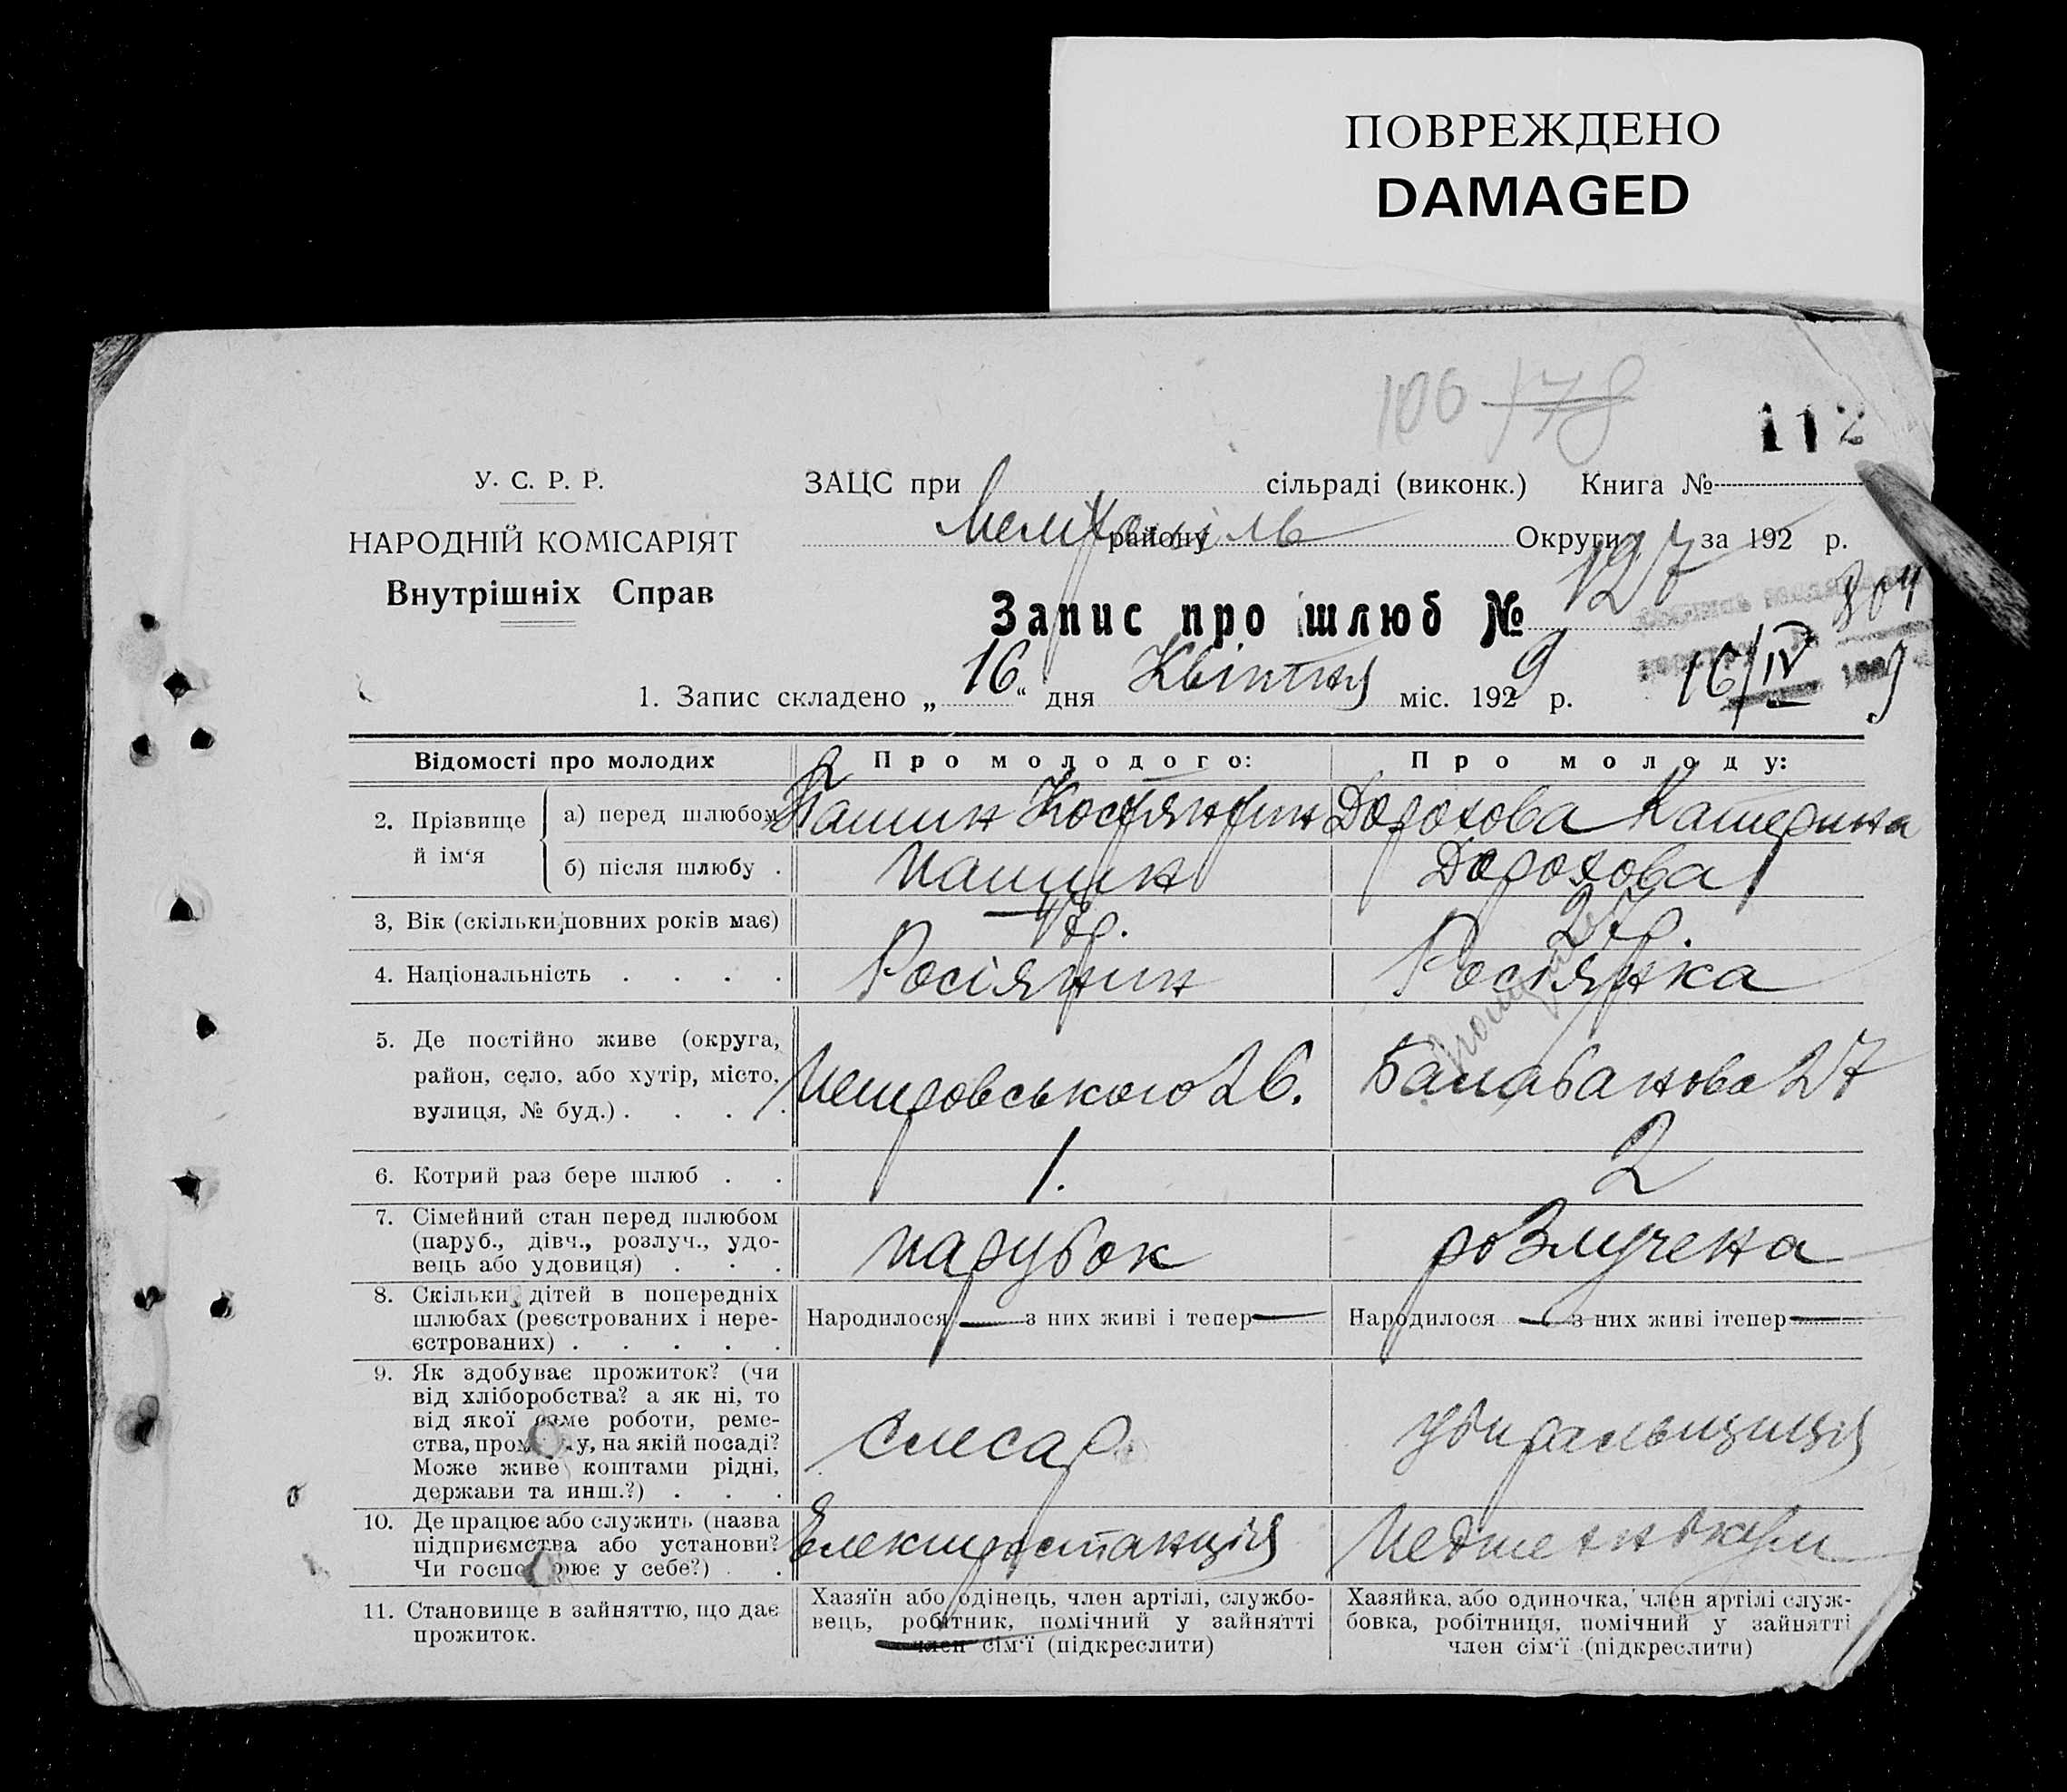 ПОВРЕЖДЕНО
DAMAGED
106 178
112
У. С. Р. Р.
НАРОДНІЙ КОМІСАРІЯТ
Внутрішніх Справ
ЗАЦС при сільраді (виконк.) Книга №
Мелітопіль району Округи за 192 р.
Запис про шлюб № 127
16/IV 9
1. Запис складено „16“ дня Квітня міс. 1929 р.
Відомості про молодих
Про молодого:
Про молоду:
2. Прізвище й ім‘я
а) перед шлюбом
Пашин Костянтин
Дорохова Катерина
б) після шлюбу .
Пашин
Дорохова
3, Вік (скільки повних років має)
27р.
4. Національність . . . .
Росіянин
Росіянка
5. Де постійно живе (округа,
район, село, або хутір, місто,
вулиця, № буд.) . . . .
Петровського 26.
Балабанова 27
6. Котрий раз бере шлюб . .
1.
2
7. Сімейний стан перед шлюбом
(паруб., дівч., розлуч., удо-
вець або удовиця) . . .
парубок
розлучена
8. Скільки дітей в попередніх
шлюбах (реєстрованих і нере-
єстрованих) . . . . .
Народилося — з них живі і тепер —
Народилося — з них живі ітепер —
9. Як здобуває прожиток? (чи
від хліборобства? а як ні, то
від якої саме роботи, реме-
ства, промислу, на якій посаді?
Може живе коштами рідні,
держави та инш.?) . . .
слесар
убиральщиця
10. Де працює або служить (назва
підприємства або установи?
Чи господарює у себе?) . .
Електростанція
Педтехнікум
11. Становище в зайняттю, що дає
прожиток.
Хазяїн або одінець, член артілі, службо-
вець, робітник, помічний у зайнятті
член сім‘ї (підкреслити)
Хазяйка, або одиночка, член артілі служ-
бовка, робітниця, помічний у зайнятті
член сім‘ї (підкреслити)